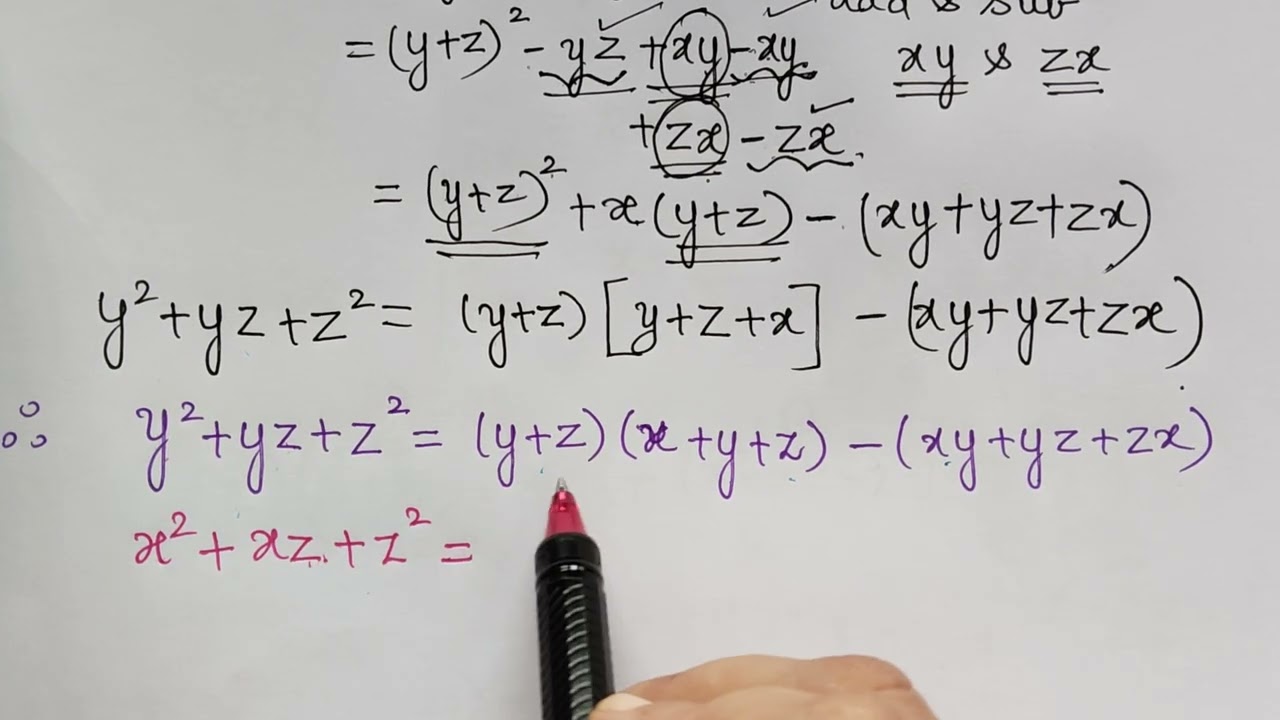 add & sub
= (y+z)² - yz + xy - xy xy & zx
+ zx - zx.
= (y+z)² + x(y+z) - (xy+yz+zx)
y² + yz + z² = (y+z)[y+z+x] - (xy+yz+zx)
∴ y² + yz + z² = (y+z)(x+y+z) - (xy+yz+zx)
x² + xz + z² =